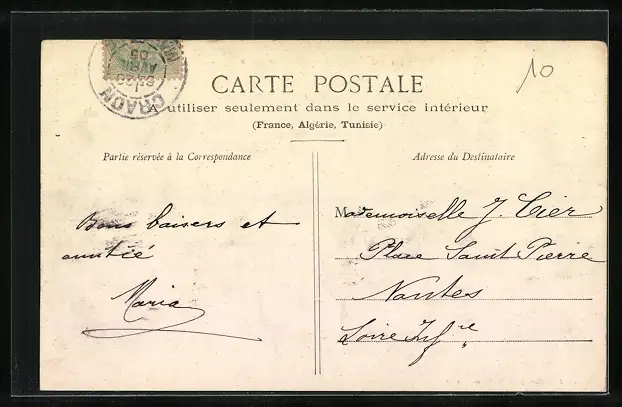 CRAON
AVRIL
05
10
CARTE POSTALE
A utiliser seulement dans le service intérieur
(France, Algérie, Tunisie)
Partie réservée à la Correspondance
Adresse du Destinataire
Bons baisers et
amitié
Maria
Mademoiselle J. Cier
Place Saint Pierre
Nantes
Loire Infre